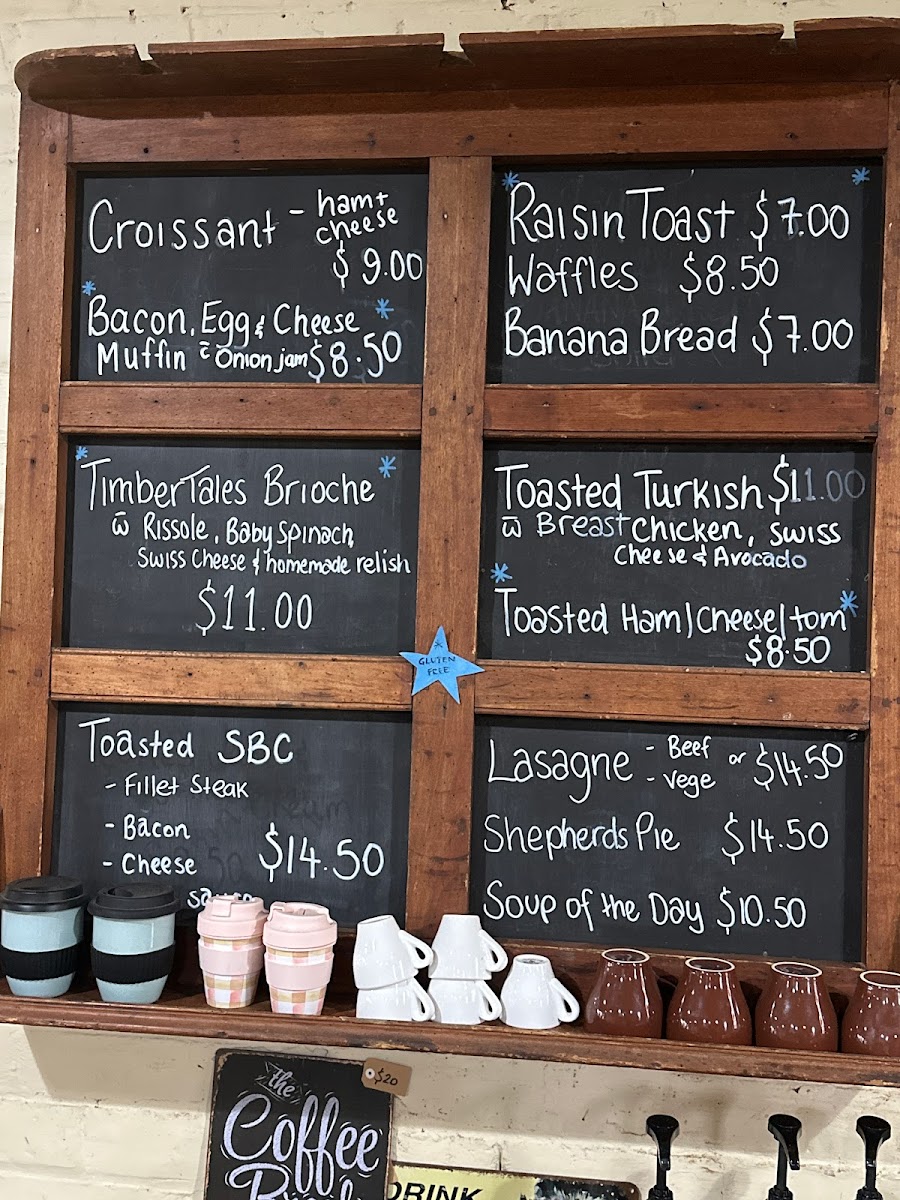 Croissant - ham +
cheese
$ 9.00
* Bacon, Egg & Cheese *
Muffin c̄ Onion jam $8.50
* Raisin Toast $7.00 *
Waffles $8.50
Banana Bread $7.00
* TimberTales Brioche *
w̄ Rissole, Baby Spinach,
Swiss Cheese & homemade relish
$11.00
Toasted Turkish $11.00
w̄ Breast Chicken, swiss
cheese & Avocado
* Toasted Ham/cheese/tom *
$8.50
* GLUTEN
FREE
Toasted SBC
- Fillet Steak
- Bacon
- Cheese
$14.50
Lasagne - Beef or $14.50
- Vege
Shepherds Pie $14.50
Soup of the Day $10.50
the
Coffee
$20
DRINK